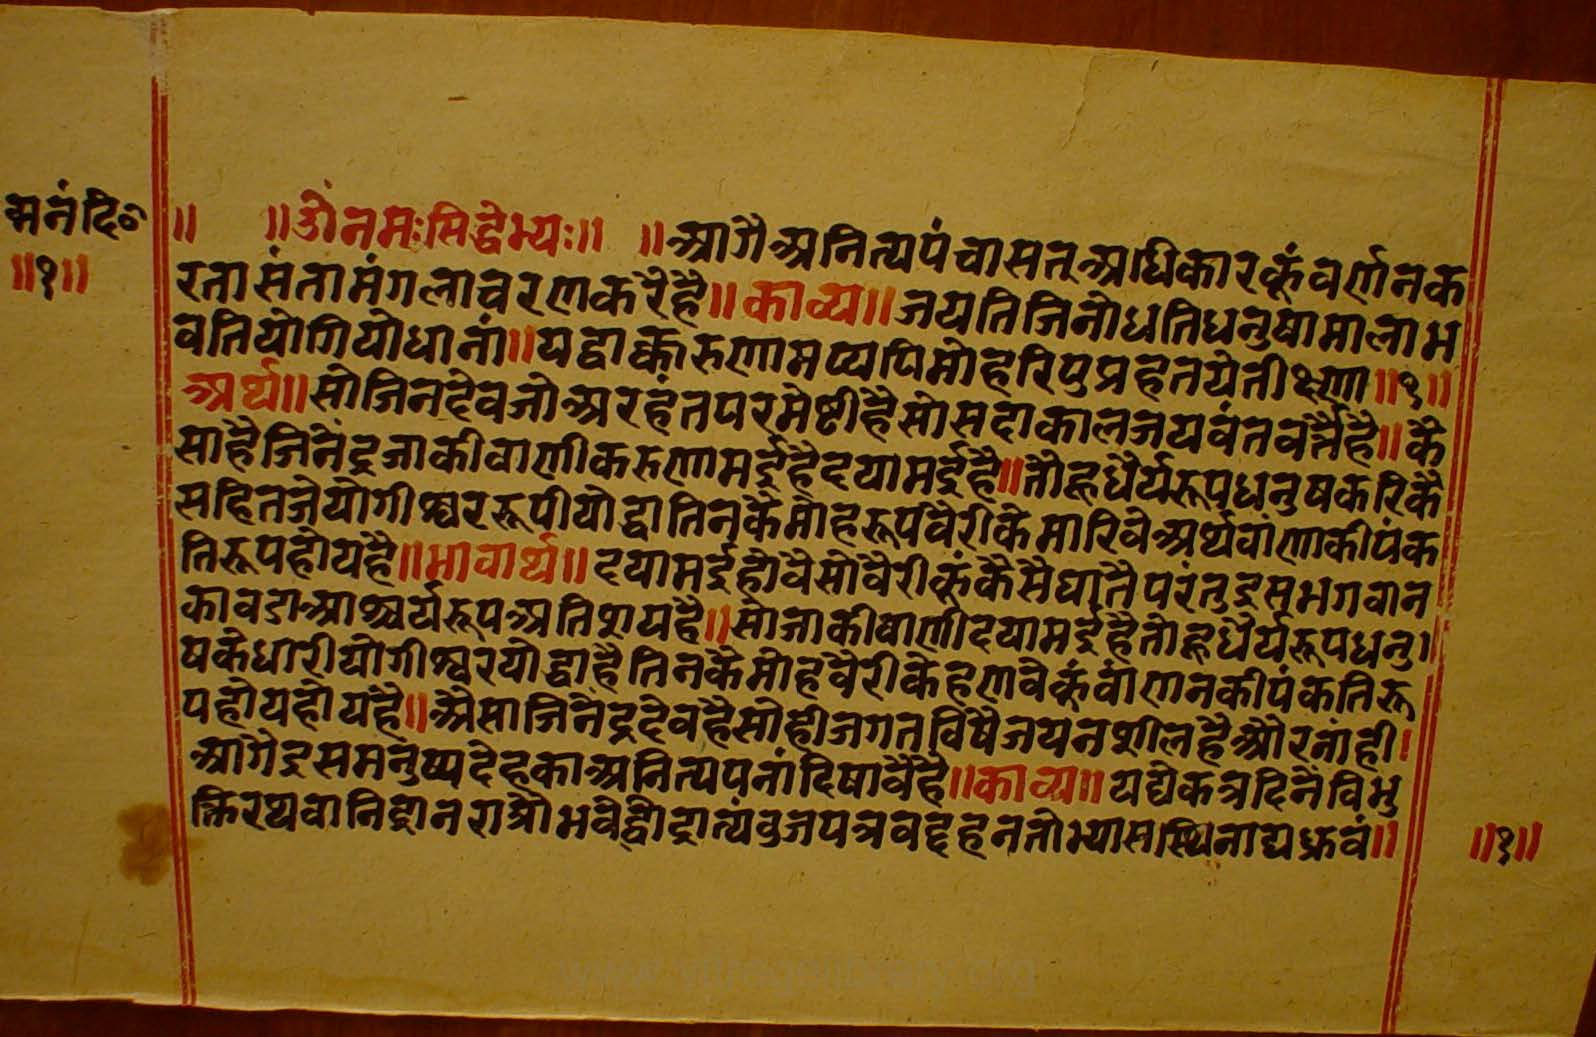 मनंदि०
॥१॥
॥ ॥ॐनमःसिद्धेभ्यः॥ ॥आगैअनित्यपंचासत्अधिकारकूंवर्णनक
रतासंतामंगलाचरणकरैहै॥काव्य॥जयतिजिनोधतिधनुषामालाभ
वतियोगियोधानां॥यद्वाक्करुणामप्यपिमोहरिपुप्रहतयेतीक्ष्णा॥१॥
अर्थ॥सोजिनदेवजोअरहंतपरमेष्टीहैसोसदाकालजयवंतवर्त्तैहै॥कै
साहैजिनेंद्रजाकीवाणीकरुणामईहैदयामईहै॥तौहूधैर्यरूपधनुषकरिकै
सहितजेयोगीश्वररूपीयोद्धातिनकैमोहरूपवैरीकेमारिवेअर्थवांणाकीपंक
तिरूपहोयहै॥भावार्थ॥दयामईहोवैसोवैरीकूंकैसैंघातैपरंतुइसभगवान
कावडाआश्चर्यरूपअतिशयहै॥सोजाकीवाणीदयामईहैतोहूधैर्यरूपधनु।
षकेधारीयोगीश्वरयोद्धाहैतिनकैमोहवैरीकेहणवेकूंवांणनकीपंकतिरू
पहोयहोयहै॥अैसाजिनेंद्रदेवहैसोहीजगतविषैजयनशीलहैऔरनांही।
आगेइसमनुष्यदेहकाअनित्यपनांदिषावैहै॥काव्य॥यद्येकत्रदिनेविभु
क्तिरथवानिद्रानरात्रौभवेद्वीद्रात्यंवुजपत्रवद्दहनतोभ्यासस्थिनाद्यध्रुवं॥
॥१॥